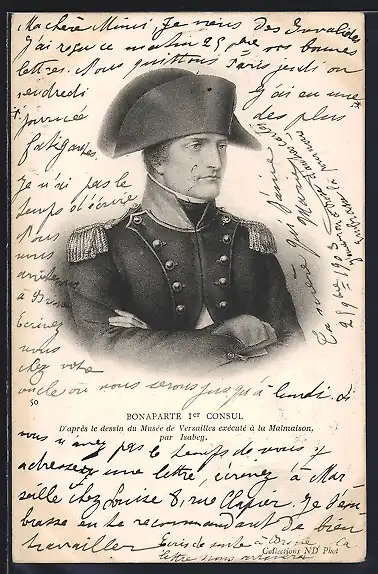 Ma chère Mimi, Je viens des Invalides
J'ai reçu ce matin 25 9bre vos bonnes
lettres. Nous quittons Paris jeudi ou
vendredi J'ai eu une
journée des plus
fatigantes.
Je n'ai pas le
temps d'écrire
Nous
nous
arrêterons
à
Ecrivez
nous
chez votre
oncle où nous serons jusqu'à lundi. Si
50
BONAPARTE 1er CONSUL
D'après le dessin du Musée de Versailles exécuté à la Malmaison,
par Isabey.
vous n'avez pas le temps de nous y
adresser une lettre, écrivez à Mar
seille chez Louise 8, rue Clapier. Je t'em
brasse en te recommandant de bien
travailler
Ecris de suite à la
lettre nous arrivera
Collections ND Phot
Ta mère qui t'aime
Marie
25 9bre 1903